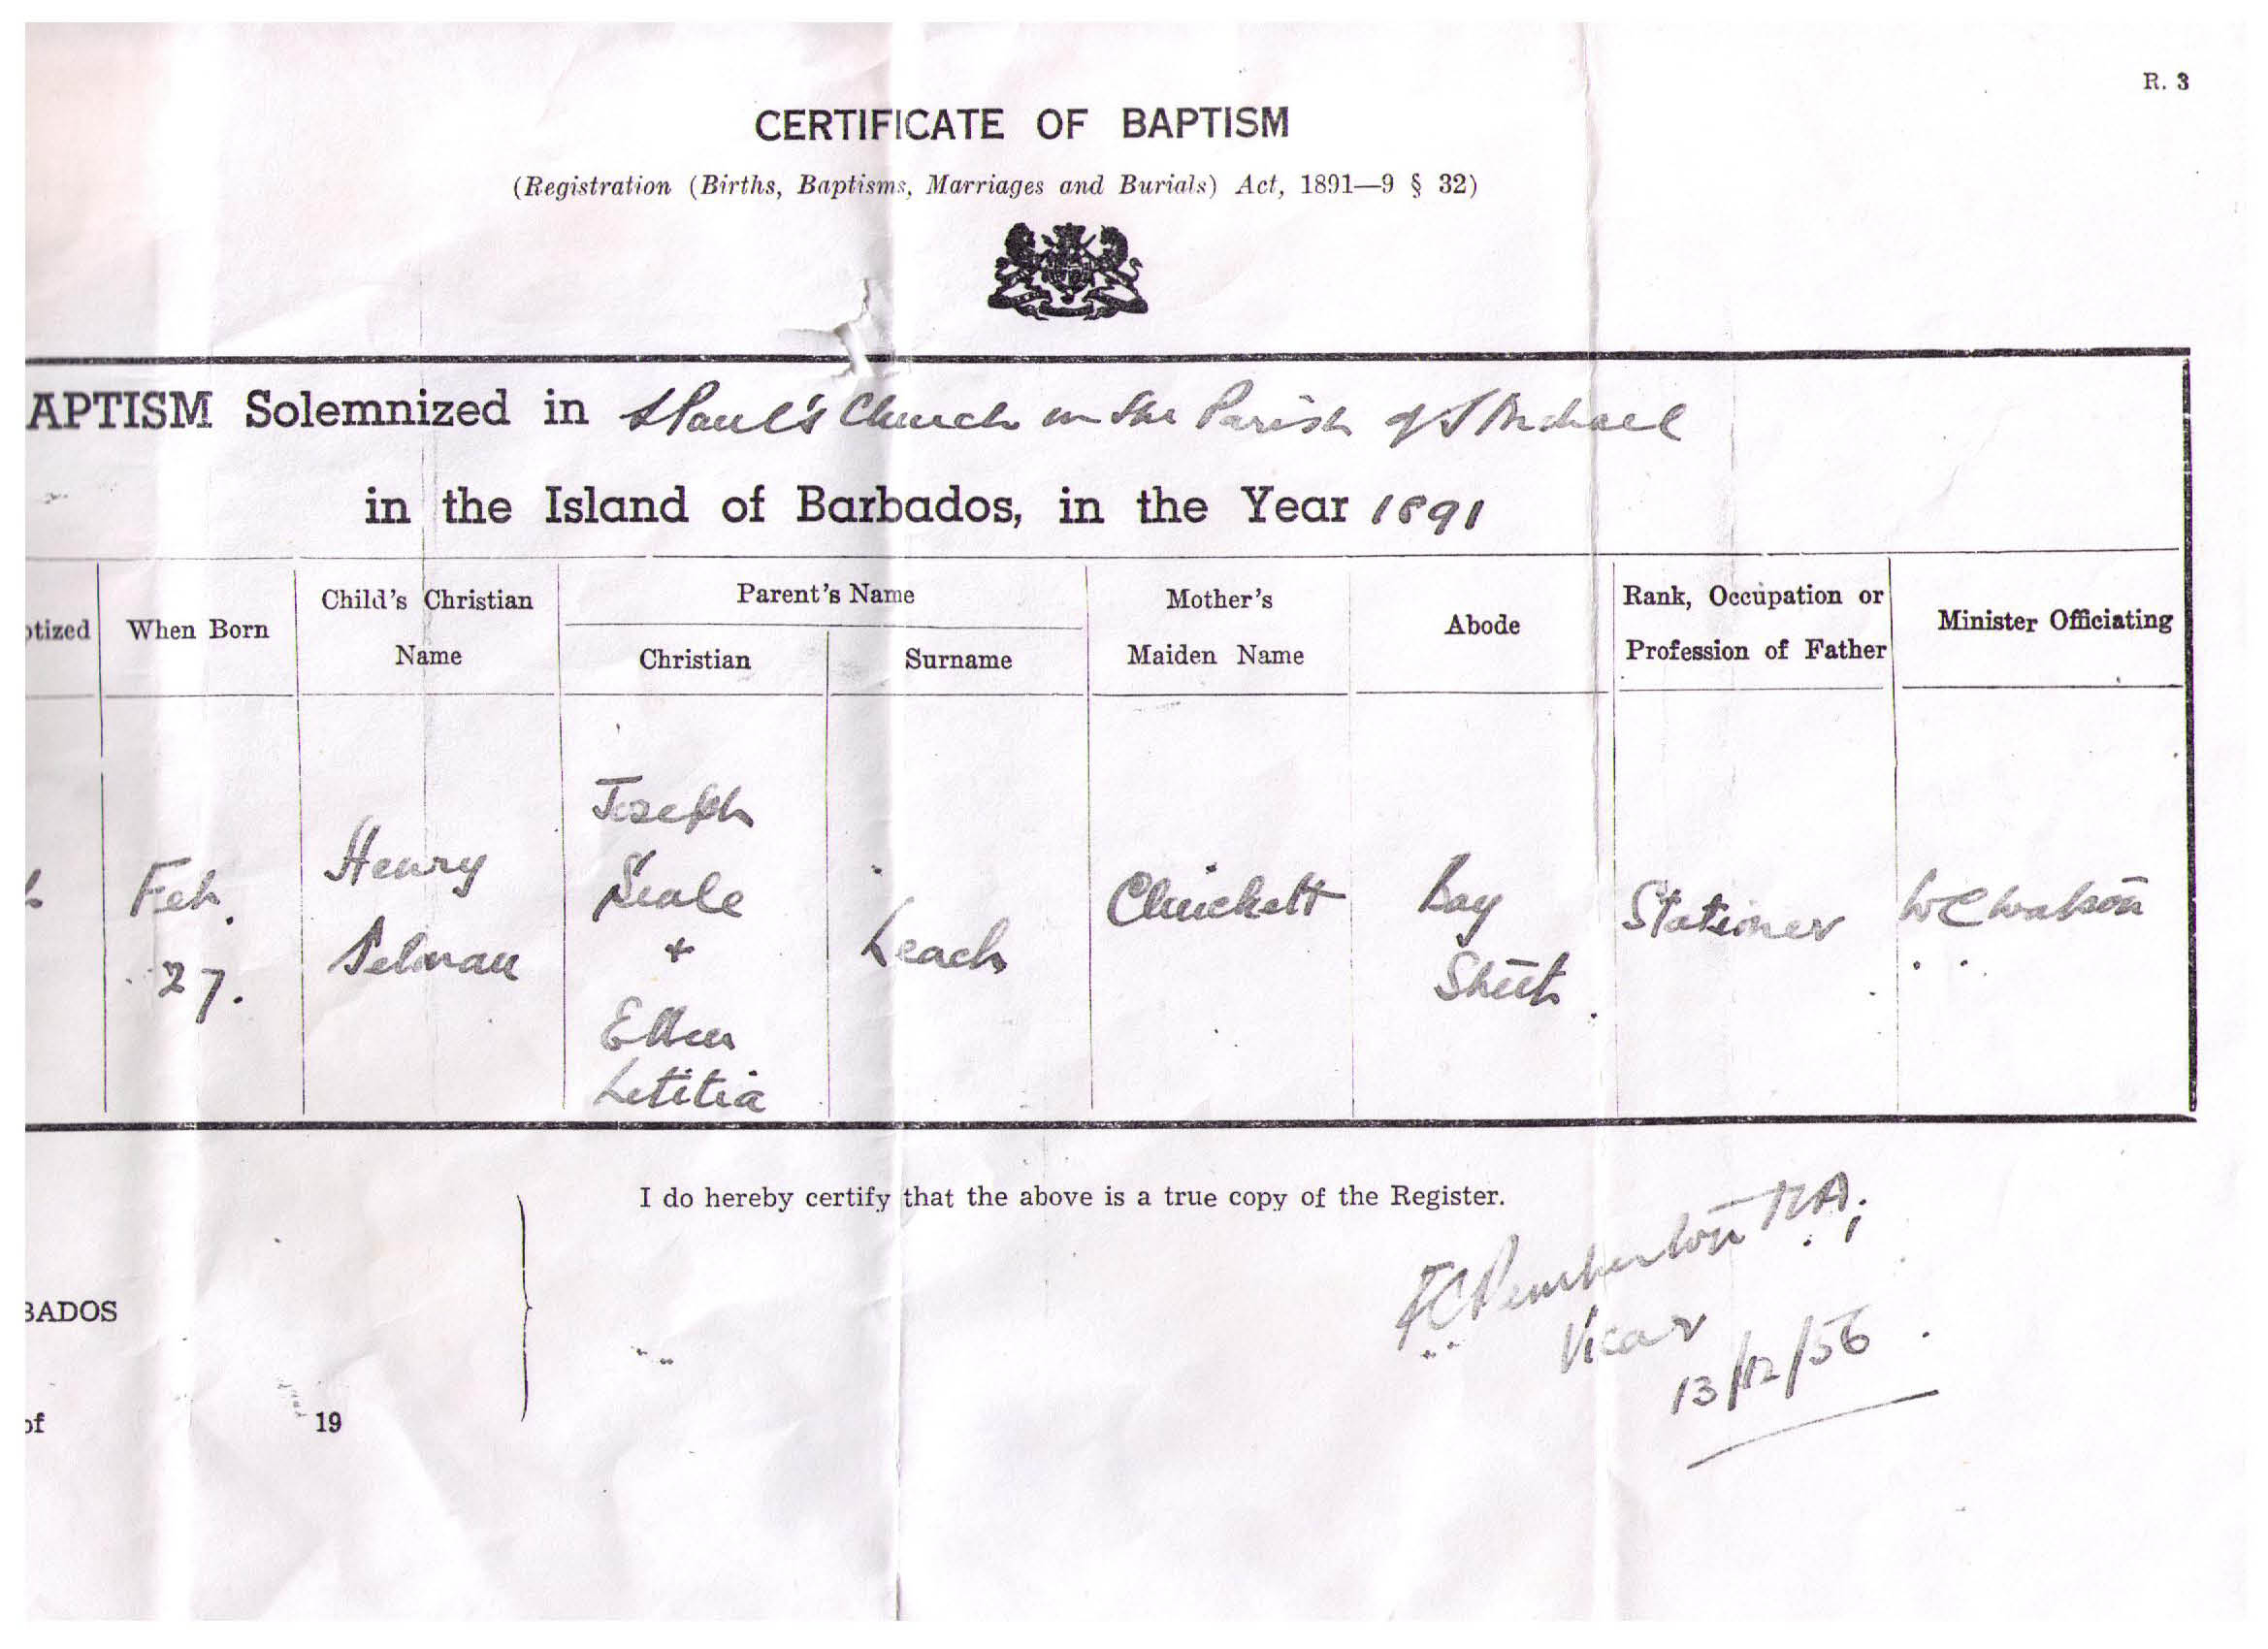 R. 3
CERTIFICATE OF BAPTISM
(Registration (Births, Baptisms, Marriages and Burials) Act, 1891—9 § 32)
APTISM Solemnized in St Paul's Church in the Parish of St Michael
in the Island of Barbados, in the Year 1891
tized
When Born
Child's Christian
Name
Parent's Name
Christian
Surname
Mother's
Maiden Name
Abode
Rank, Occupation or
Profession of Father
Minister Officiating
Feb.
27.
Henry
Selman
Joseph
Seale
+
Ellen
Letitia
Leach
Chuckett
Bay
Street
Stationer
W C Watson
I do hereby certify that the above is a true copy of the Register.
BADOS
of 19
Pemberton
Vicar
13/12/56